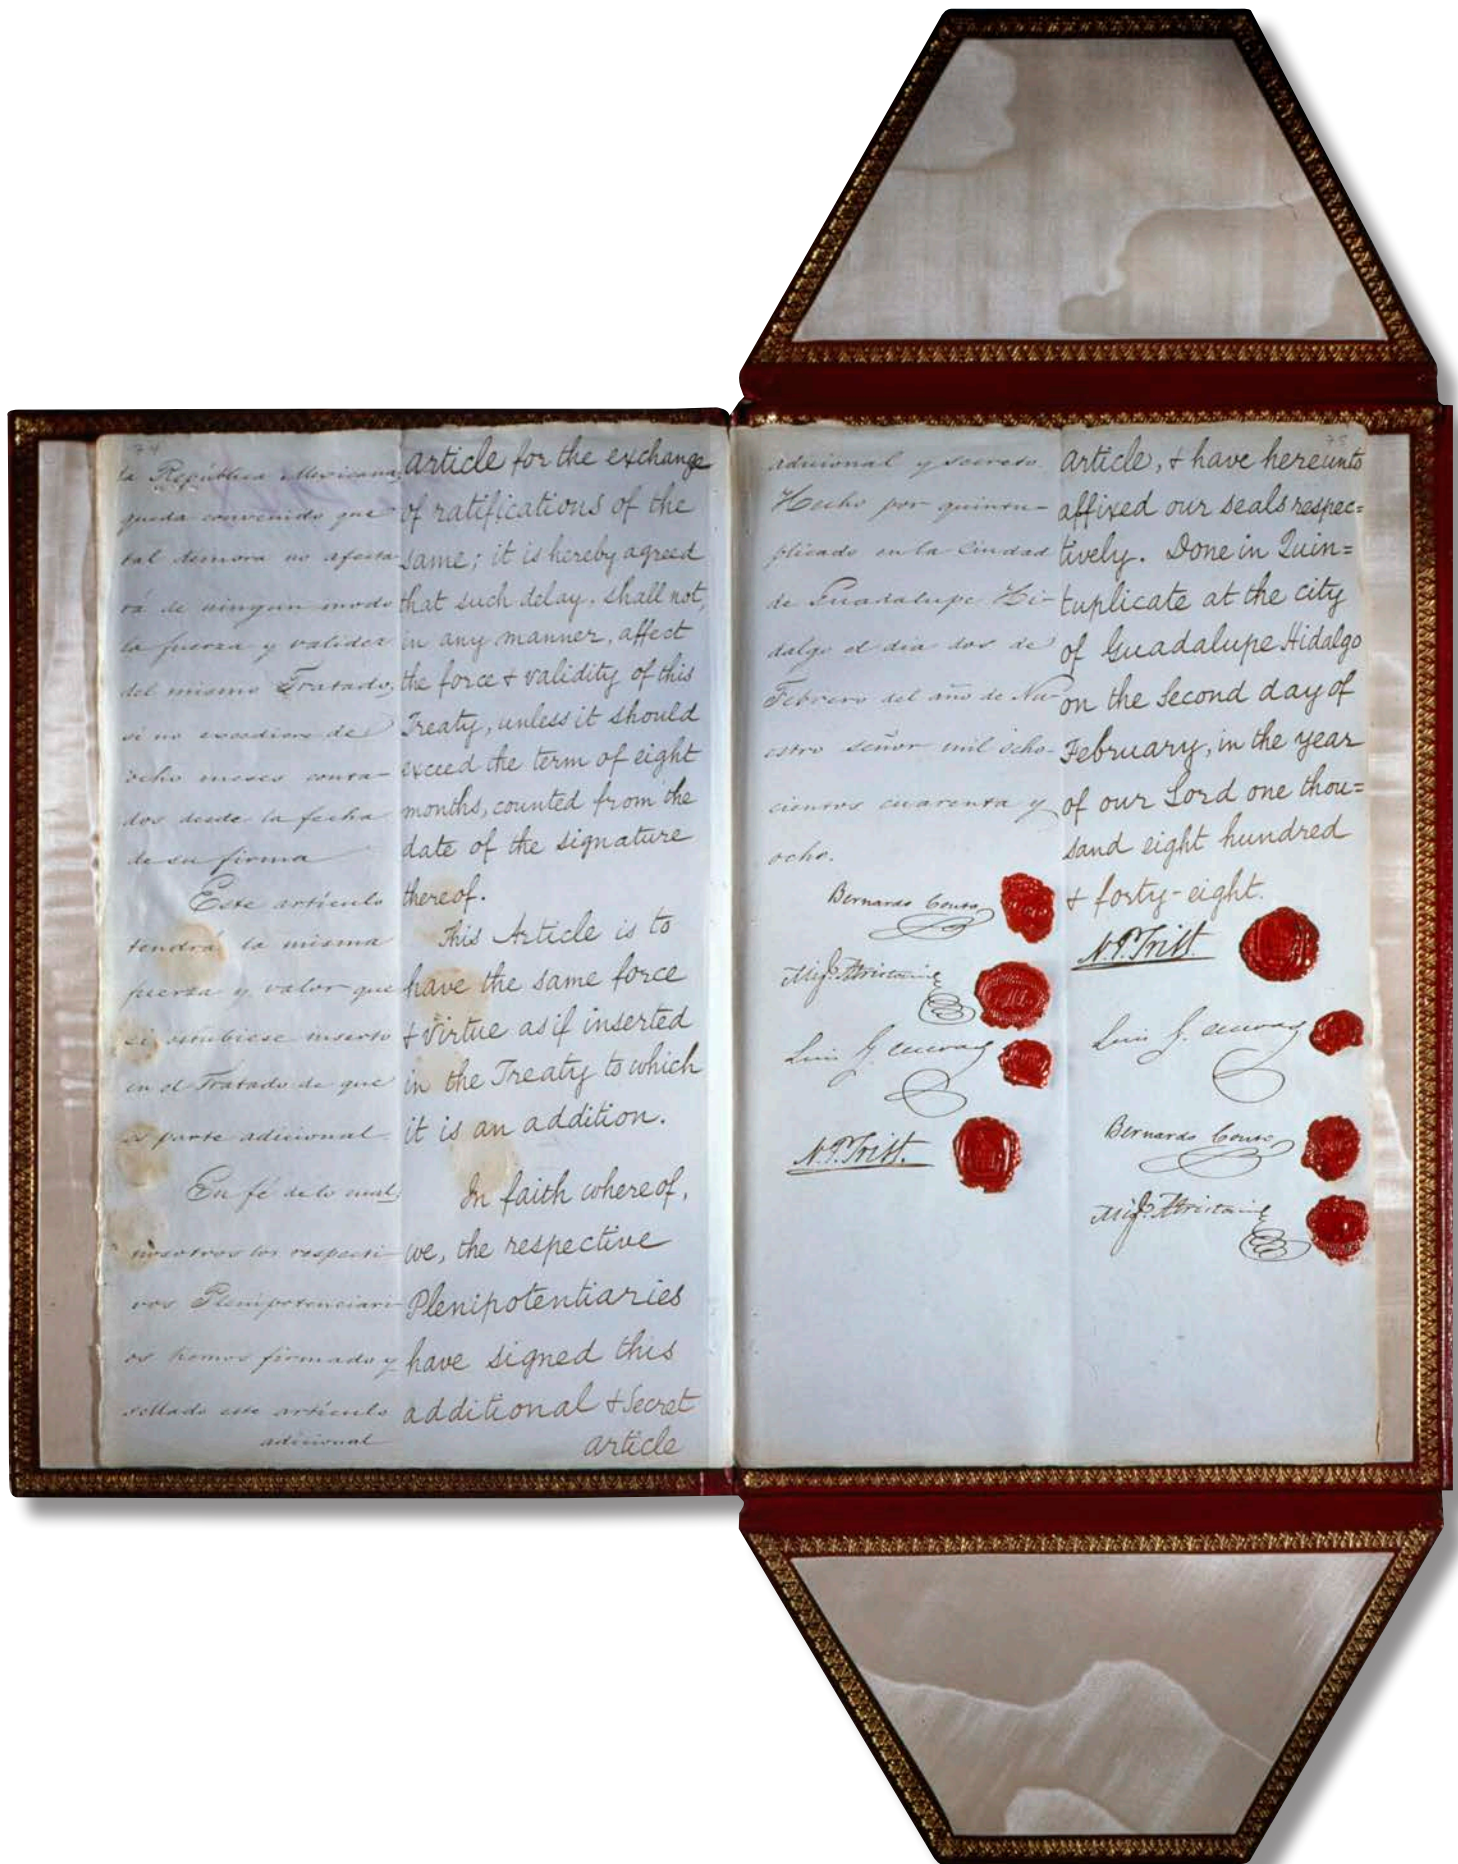 74
la República Mexicana,
queda convenido que
tal demora no afecta-
rá de ningun modo
la fuerza y validez
del mismo Tratado,
si no excediere de
ocho meses conta-
dos desde la fecha
de su firma
Este artículo
tendrá la misma
fuerza y valor que
si estubiese inserto
en el Tratado de que
es parte adicional.
En fé de lo cual,
nosotros los respecti-
vos Plenipotenciari-
os hemos firmado y
sellado este artículo
adicional
article for the exchange
of ratifications of the
same; it is hereby agreed
that such delay. shall not,
in any manner, affect
the force & validity of this
Treaty, unless it should
exceed the term of eight
months, counted from the
date of the signature
thereof.
This Article is to
have the same force
& virtue as if inserted
in the Treaty to which
it is an addition.
In faith whereof,
we, the respective
Plenipotentiaries
have signed this
additional & Secret
article
75
adicional y secreto.
Hecho por quintu-
plicado en la Ciudad
de Guadalupe Hi-
dalgo el dia dos de
Febrero del año de Nu-
estro Señor mil ocho-
cientos cuarenta y
ocho.
Bernardo Couto
Mig. Atristain
Luis G. Cuevas
N. P. Trist.
article, & have hereunto
affixed our seals respec=
tively. Done in Quin=
tuplicate at the city
of Guadalupe Hidalgo
on the second day of
February, in the year
of our Lord one thou=
sand eight hundred
& forty-eight.
N. P. Trist.
Luis G. Cuevas
Bernardo Couto
Mig. Atristain